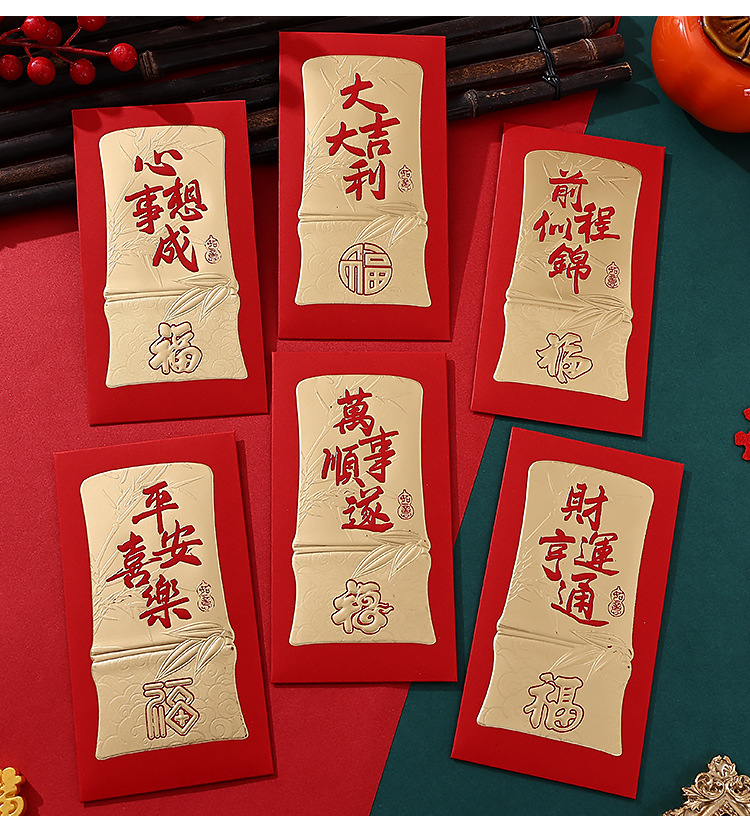 心想事成
福
大吉大利
福
前程似錦
福
平安喜樂
福
萬事順遂
福
財運亨通
福